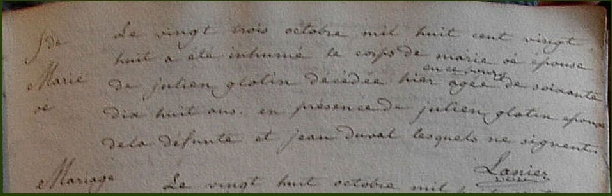 S de Le vingt trois octobre mil huit cent vingt
huit a été inhumé le corps de marie oé épouse
Marie de julien glotin décédée hier en ce bourg agée de soixante
oé dix huit ans. en presence de julien glotin epoux
dela défunte et jean duval lesquels ne signent.
Lanier
Mariage Le vingt huit octobre mil